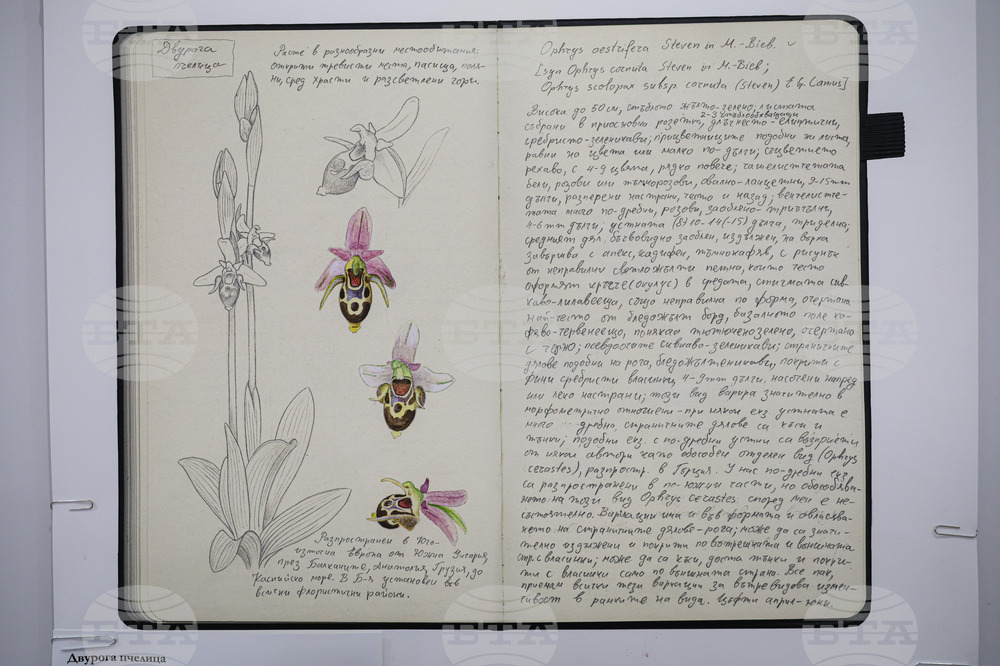 Двурога
пчелица
Расте в разнообразни местообитания:
открити тревисти места, пасища, поля-
ни, сред храсти и разсветлени гори.
Разпространен в Юго-
източна Европа от Южна Унгария,
през Балканите, Анатолия, Грузия, до
Каспийско море. В Б-я установен във
всички флористични райони.
Ophrys oestrifera Steven in M.-Bieb.
[syn Ophrys cornuta Steven in M.-Bieb;
Ophrys scolopax subsp cornuta (Steven) E.G. Camus]
Висока до 50 см, стъблото жълто-зелено; листата
2-3 стъблообхващащи
събрани в приосновна розетка, длъгнесто-елиптични,
сребристо-зеленикави; прицветниците подобни на листа,
равни на цвета или малко по-дълги; съцветието
рехаво, с 4-9 цвята, рядко повече; чашелистчетата
бели, розови или тъмнорозови, овално-ланцетни, 9-15mm
дълги, разперени настрани, често и назад; венчелисте-
тата много по-дребни, розови, заоблено-триъгълни,
4-6 mm дълги, устната (8)10-14(-15) дълга, триделна;
средният дял бъчвовидно заоблен, издължен, на върха
завършва с апекс, кадифен, тъмнокафяв, с рисунък
от неправилни светложълти петна, които често
оформят кръгче (окулус) в средата, стигмата сив-
каво-лилавееща, също неправилна по форма, очертана
най-често от бледожълт борд, базалното поле ка-
фяво-червенеещо, понякога тютюневозелено, очертано
с черно; псевдоочите сивкаво-зеленикави; страничните
дялове подобни на рога, бледожълтеникави, покрити с
фини сребристи власинки, 4-9mm дълги, насочени напред
или леко настрани; този вид варира значително в
морфометрично отношение - при някои екз устната е
много по-дребна, страничните дялове са къси и
тъпи; подобни екз. с по-дребни устни са възприети
от някои автори като обособен отделен вид (Ophrys
cerastes), разпростр. в Гърция. У нас по-дребни екз
са разпространени в по-южни части, но обособява-
нето на този вид Ophrys cerastes според мен е не-
състоятелно. Вариации има и във формата и овласява-
нето на страничните дялове-рога; може да са значи-
телно издължени и покрити по вътрешната и външната
стр. с власинки; може да са къси, доста тъпи и покри-
ти с власинки само по външната страна. Все пак,
приемам всички тези вариации за вътревидова измен-
чивост в рамките на вида. Цъфти април-юни.
Двурога пчелица